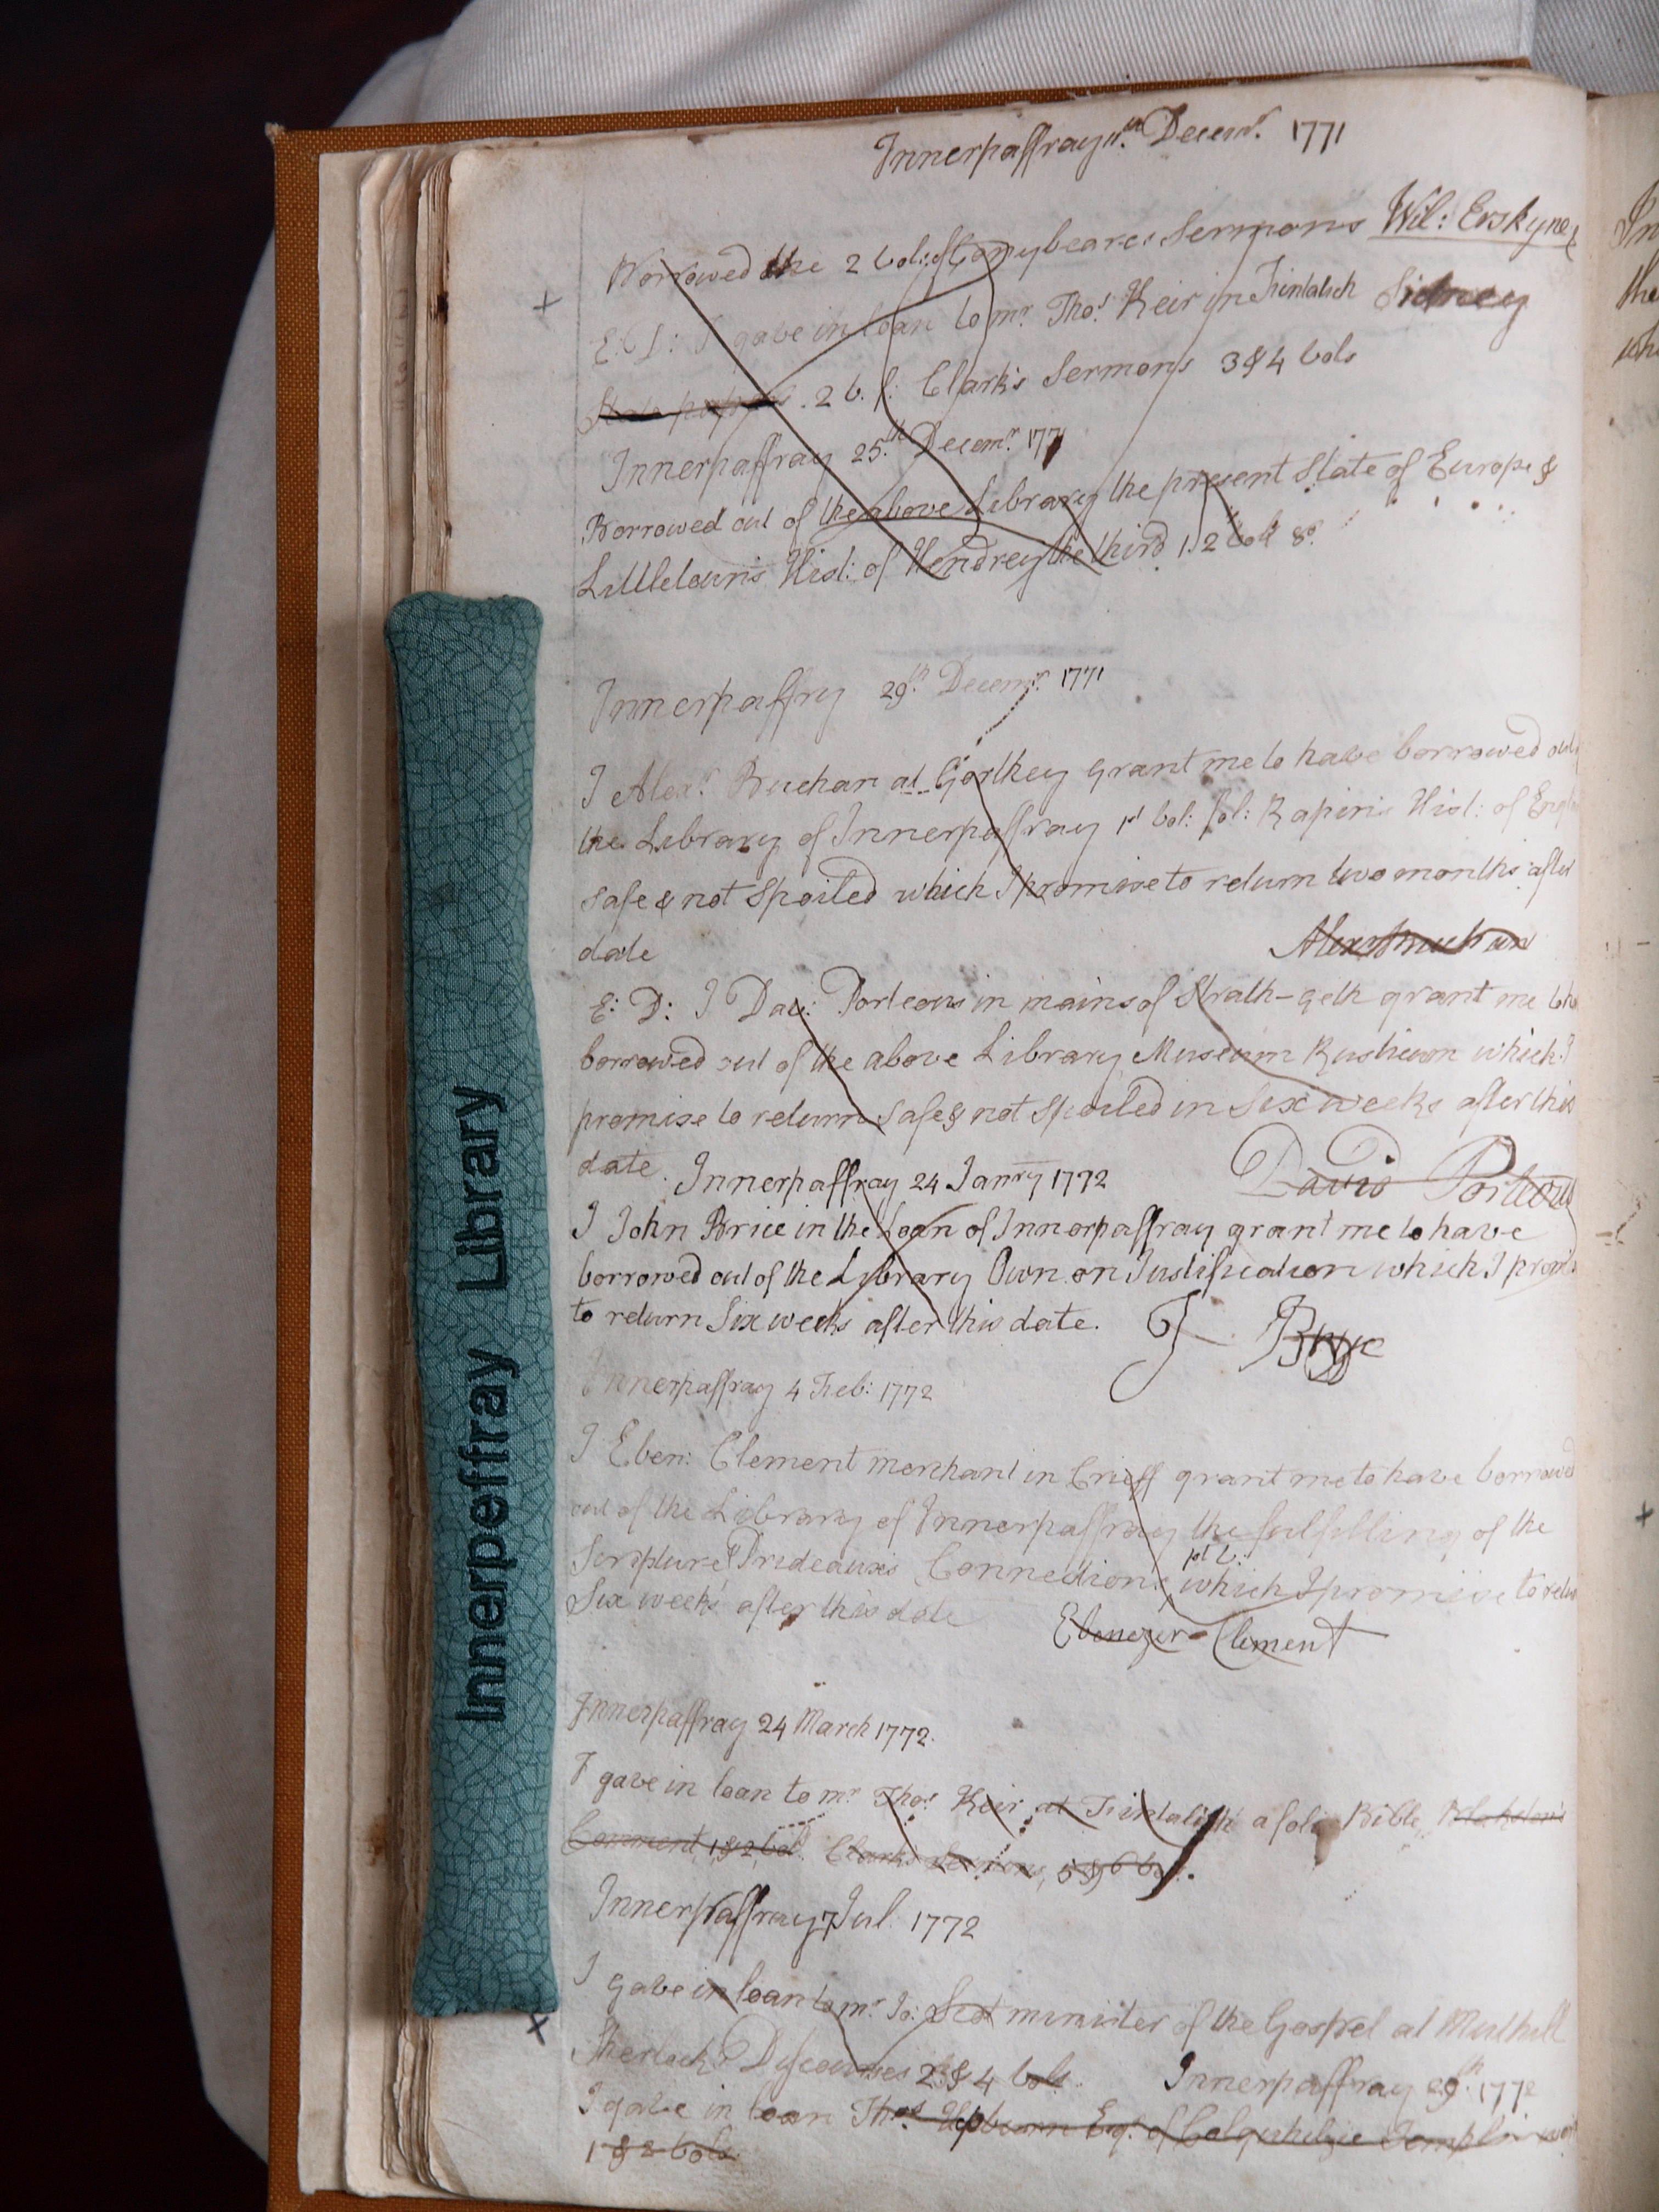 Innerpaffray 11.th Decemr. 1771
Borrowed the 2 vol: of Conybeares Sermons Wil: Erskyne
E: D: I gave in loan to mr. Thos. Keir in Fintalich Sidney
2 v. f: Clark's Sermons 3 & 4 vols
Innerpaffray 25.th Decemr. 1771
Borrowed out of the above Library the present State of Europe &
Littletown's Hist: of Hendrey the third 1. 2 vols 8o.
Innerpaffry 29.th Decemr. 1771
I Alexr. Buchan at Gorthey grant me to have borrowed out
the Library of Innerpaffray 1st vol: fol: Rapin's Hist: of
safe & not Spoiled which I promise to return two months after
date
Alexr Buchan
E: D: I Dav: Porteous in mains of Strath-geth grant me to
borrowed out of the above Library Museum Rusticum which I
promise to return safe & not Spoiled in Six weeks after this
date. Innerpaffray 24 Janry 1772 David Porteous
I John Brice in the Loan of Innerpaffray grant me to have
borrowed out of the Library Own on Justification which I
to return Six weeks after this date. J Bryce
Innerpaffray 4 Feb: 1772
I Eben: Clement merchant in Crieff grant me to have borrowed
out of the Library of Innerpaffray the fulfilling of the
Scripture & Prideaux's Connections 1st v: which I promise to
Six weeks after this date Ebenezer Clement
Innerpaffray 24 March 1772.
I gave in loan to mr Thos. Keir at Fintalich a folio Bible
Comment, 1 & 2 vol. Clarks Sermons, 5 & 6 vol:.
Innerpaffray 7 Jul. 1772
I gave in loan to mr Jo: Scot minister of the Gospel at Muthill
Sherlock's Discourses 2 & 4 vols. Innerpaffray 29.th 1772
I gave in loan Thos. Hepburn Esq. of Colquhalzie
1 & 2 vols.
Innerpeffray Library